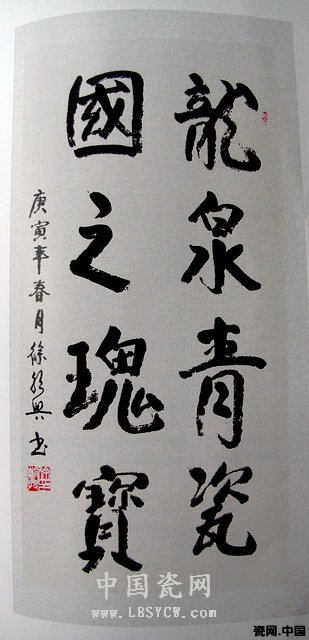 龍泉青瓷
國之瑰寶
庚寅年春月徐
書
中国瓷网
www.LBSYCW.com
瓷网.中国